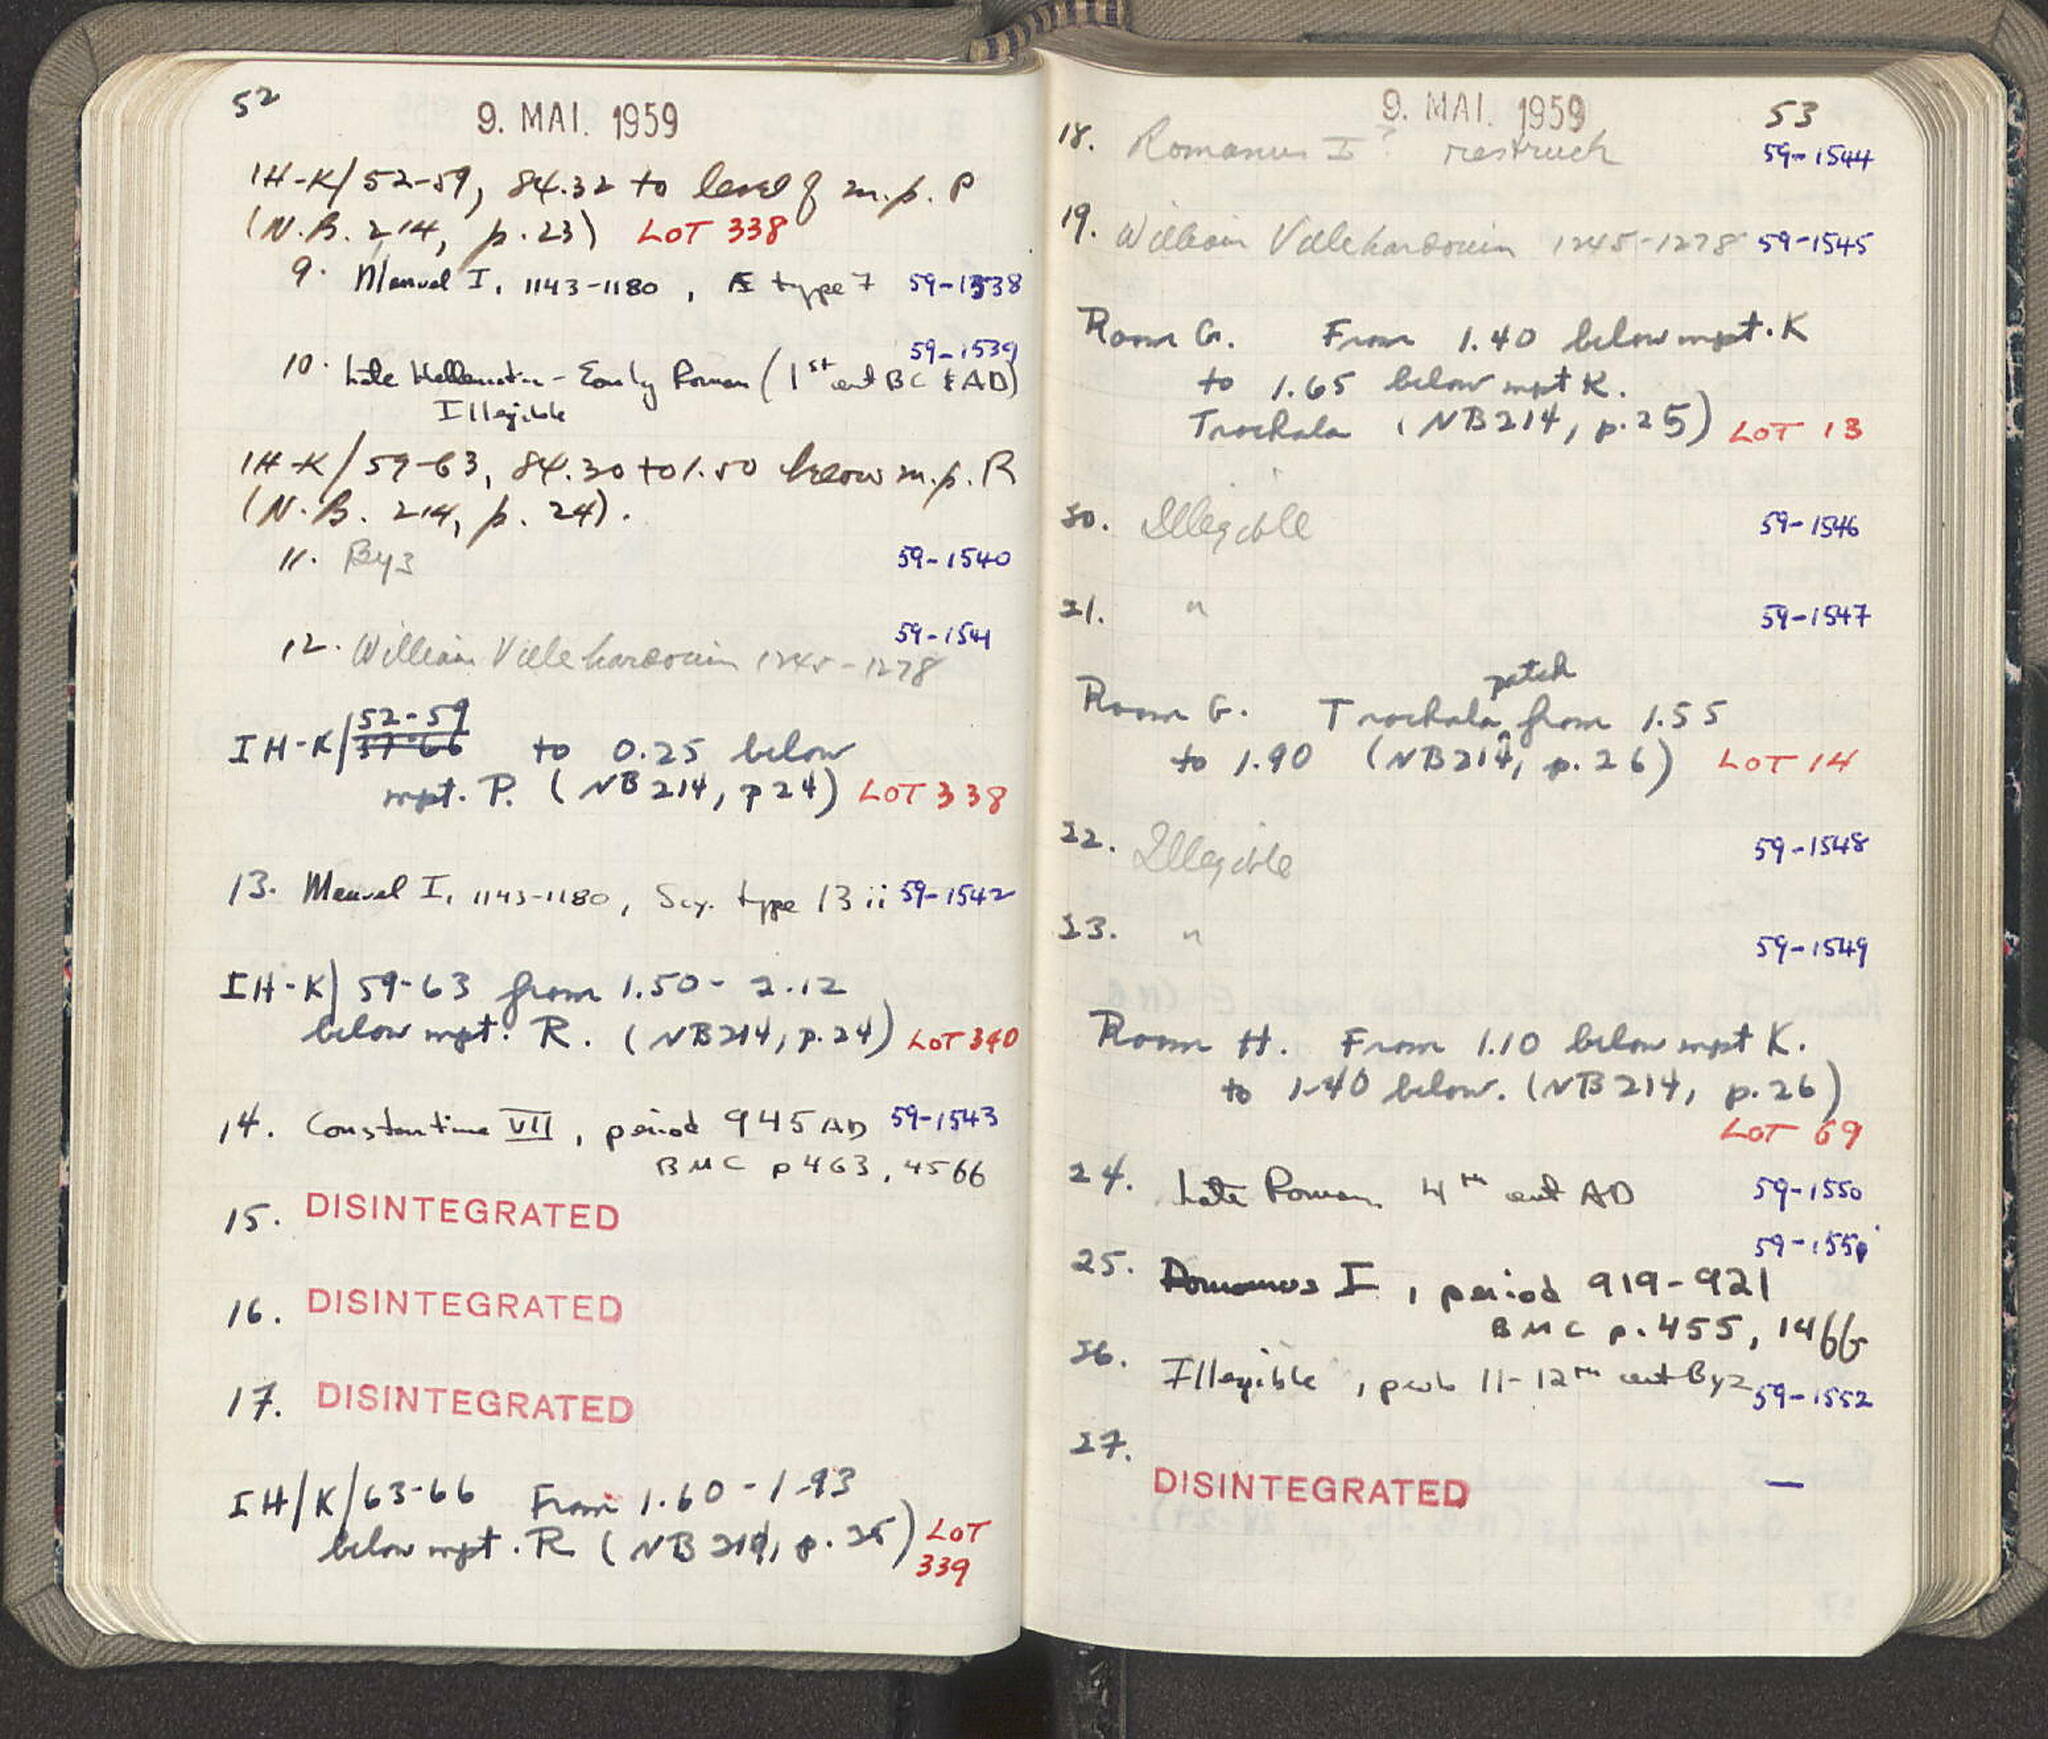 52
9. MAI. 1959
IH-K/52-59, 84.32 to level of m.p. P
(N.B. 214, p. 23) LOT 338
9. Manuel I, 1143-1180, Æ type 7 59-1538
59-1539
10. Late Hellenistic - Early Roman (1st cent BC & AD)
Illegible
IH-K/59-63, 84.30 to 1.50 below m.p. R
(N.B. 214, p. 24).
11. Byz 59-1540
59-1541
12. William Villehardouin 1245-1278
52-59
IH-K/37-66 to 0.25 below
mpt. P. (NB 214, p 24) LOT 338
13. Manuel I, 1143-1180, Scy. type 13 ii 59-1542
IH-K/59-63 from 1.50 - 2.12
below mpt. R. (NB 214, p. 24) LOT 340
14. Constantine VII, period 945 AD 59-1543
BMC p 463, 4566
15. DISINTEGRATED
16. DISINTEGRATED
17. DISINTEGRATED
IH/K/63-66 From 1.60 - 1.93
below mpt. R (NB 214, p. 25) LOT
339
9. MAI. 1959
53
18. Romanus I? restruck 59-1544
19. William Villehardouin 1245-1278 59-1545
Room G. From 1.40 below mpt. K
to 1.65 below mpt K.
Trochala (NB 214, p. 25) LOT 13
20. Illegible 59-1546
21. " 59-1547
patch
Room G. Trochala ^ from 1.55
to 1.90 (NB 214, p. 26) LOT 14
22. Illegible 59-1548
23. " 59-1549
Room H. From 1.10 below mpt K.
to 1.40 below. (NB 214, p. 26)
LOT 69
24. Late Roman 4th cent AD 59-1550
59-1551
25. Romanus I, period 919-921
BMC p. 455, 1466
26. Illegible, prob 11-12th cent Byz 59-1552
27.
DISINTEGRATED —